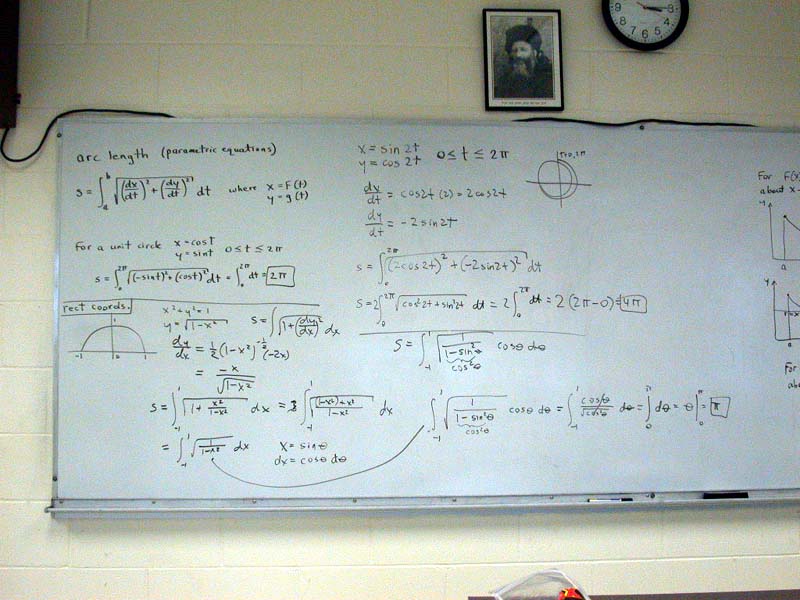 arc length (parametric equations)
s = ∫_a^b √((dx/dt)² + (dy/dt)²) dt where x = F(t)
y = g(t)
For a unit circle x = cost
y = sint 0 ≤ t ≤ 2π
s = ∫_0^2π √((-sint)² + (cost)²) dt = ∫_0^2π dt = 2π
rect coords.
x² + y² = 1
y = √(1-x²)
s = ∫ √(1 + (dy/dx)²) dx
-1 0 1
1
dy/dx = 1/2 (1-x²)^(-1/2) (-2x)
= -x/√(1-x²)
s = ∫_-1^1 √(1 + x²/(1-x²)) dx = ∫_-1^1 √(((1-x²)+x²)/(1-x²)) dx
= ∫_-1^1 √(1/(1-x²)) dx
x = sinθ
dx = cosθ dθ
x = sin 2t
y = cos 2t 0 ≤ t ≤ 2π
t=0, 2π
dx/dt = cos2t (2) = 2cos2t
dy/dt = -2 sin2t
s = ∫_0^2π √((2cos2t)² + (-2sin2t)²) dt
s = 2∫_0^2π √(cos²2t + sin²2t) dt = 2∫_0^2π dt = 2(2π-0) = 4π
S = ∫_-1^1 √(1/(1-sin²θ)) cosθ dθ
cos²θ
∫_-1^1 √(1/(1-sin²θ)) cosθ dθ = ∫_-1^1 cosθ/√(cos²θ) dθ = ∫_0^π dθ = θ|_0^π = π
cos²θ
For F(x
about x-
y
a
y
a
For
abo
12
1
2
3
4
5
6
7
8
9